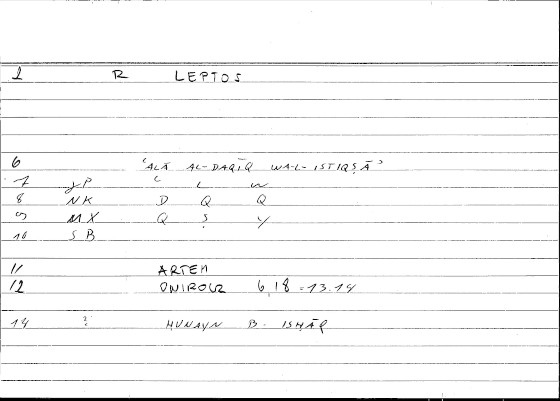 1 R LEPTOS
6 ʿALĀ AL-DAQĪQ WA-L-ISTIQṢĀʾ
7 JP ʿ L W
8 NK D Q Q
9 MX Q Ṣ Y
10 SB
11 ARTEM
12 ONIROCR 6,18 = 13.14
14 ? ḤUNAYN B. ISḤĀQ